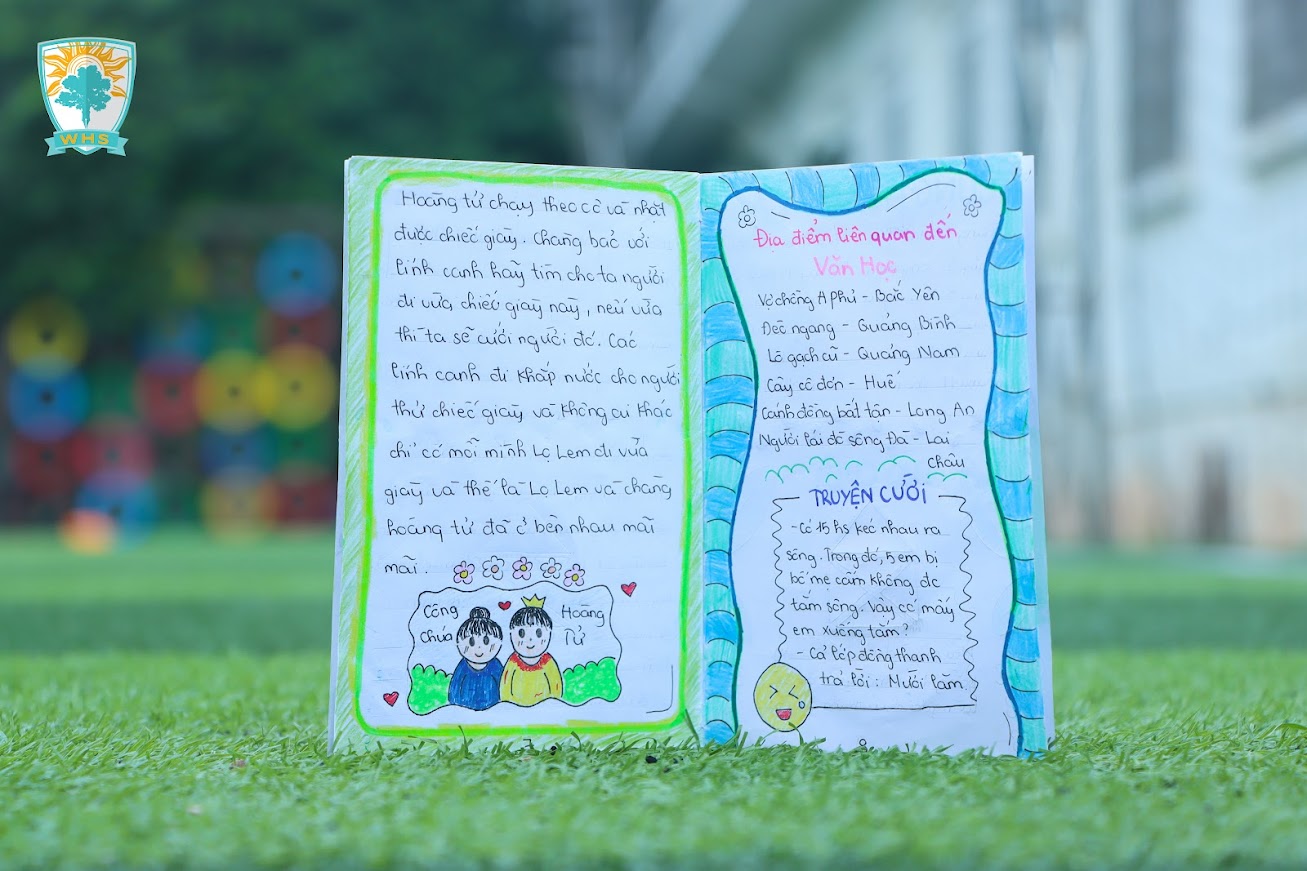 WHS
Hoàng tử chạy theo cô và nhặt
được chiếc giày. Chàng bảo với
lính canh hãy tìm cho ta người
đi vừa chiếc giày này, nếu vừa
thì ta sẽ cưới người đó. Các
lính canh đi khắp nước cho người
thử chiếc giày và không ai khác
chỉ có mỗi mình Lọ Lem đi vừa
giày và thế là Lọ Lem và chàng
hoàng tử đã ở bên nhau mãi
mãi.
Công
Chúa
Hoàng
Tử
Địa điểm liên quan đến
Văn Học
Vợ chồng A Phủ - Bắc Yên
Đèo ngang - Quảng Bình
Lò gạch cũ - Quảng Nam
Cây cô đơn - Huế
Cánh đồng bất tận - Long An
Người lái đò sông Đà - Lai
châu
TRUYỆN CƯỜI
- Có 15 hs kéo nhau ra
sông. Trong đó, 5 em bị
bố mẹ cấm không đc
tắm sông. Vậy có mấy
em xuống tắm?
- Cả lớp đồng thanh
trả lời: Mười lăm